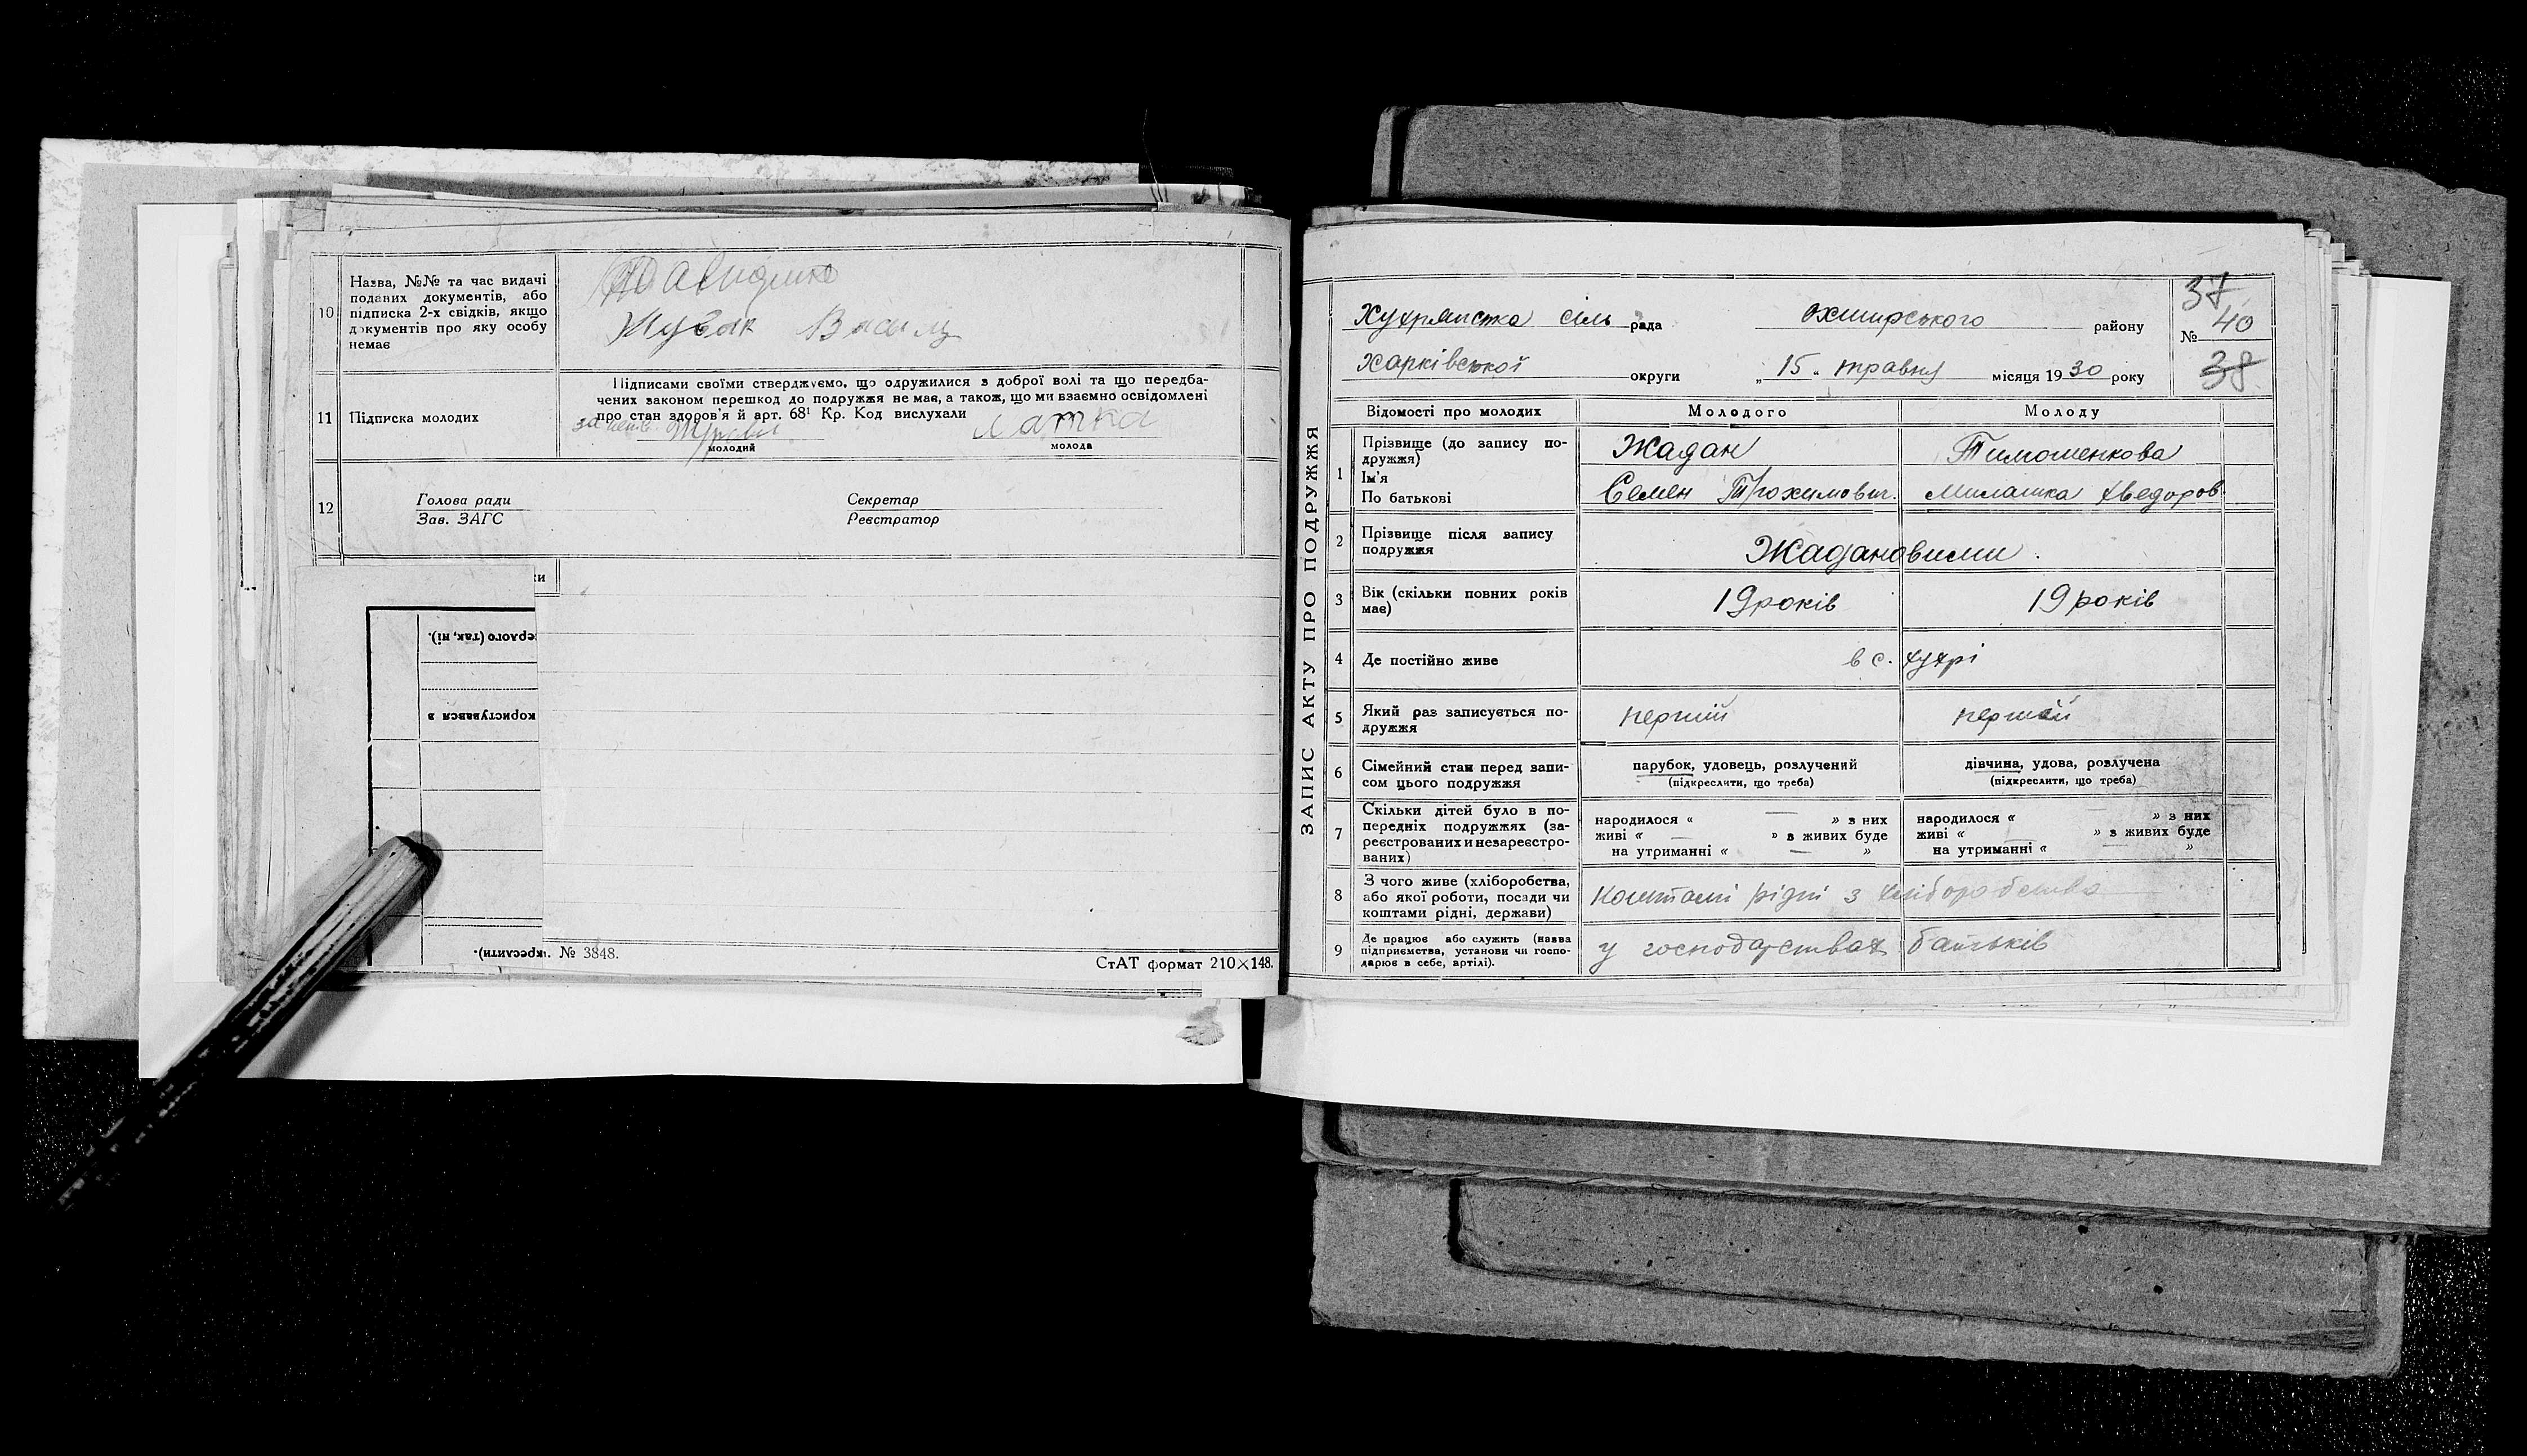 10
Назва, №№ та час видачі
поданих документів, або
підписка 2-х свідків, якщо
документів про яку особу
немає
Василь
11
Підписка молодих
Підписами своїми стверджуємо, що одружилися з доброї волі та що передба-
чених законом перешкод до подружжя не має, а також, що ми взаємно освідомлені
про стан здоров'я й арт. 68¹ Кр. Код вислухали
молодий
молода
12
Голова ради
Зав. ЗАГС
Секретар
Реєстратор
ки
ерлого (так, ні).
користувався з
креслити).
№ 3848.
СтАТ формат 210×148.
ЗАПИС АКТУ ПРО ПОДРУЖЖЯ
сіль рада
охтирського району
37
№ 40
38
Харківської округи
„15„ травня місяця 1930 року
Відомості про молодих
Молодого
Молоду
1
Прізвище (до запису по-
дружжя)
Ім'я
По батькові
Жадан
Семен Трохимович.
Тимошенкова
Милашка Хведоров.
2
Прізвище після запису
подружжя
Жадановими.
3
Вік (скільки повних років
має)
19 років
19 років
4
Де постійно живе
в с. Хухрі
5
Який раз записується по-
дружжя
перший
перший
6
Сімейний стан перед запи-
сом цього подружжя
парубок, удовець, розлучений
(підкреслити, що треба)
дівчина, удова, розлучена
(підкреслити, що треба)
7
Скільки дітей було в по-
передніх подружжях (за-
реєстрованих и незареєстро-
ваних)
народилося « — » з них
живі « — » з живих буде
на утриманні « — »
народилося « — » з них
живі « — » з живих буде
на утриманні « — »
8
З чого живе (хліборобства,
або якої роботи, посади чи
коштами рідні, держави)
коштами рідні з хліборобства
9
Де працює або служить (назва
підприємства, установи чи госпо-
дарює в себе, артілі).
у господарствах батьків